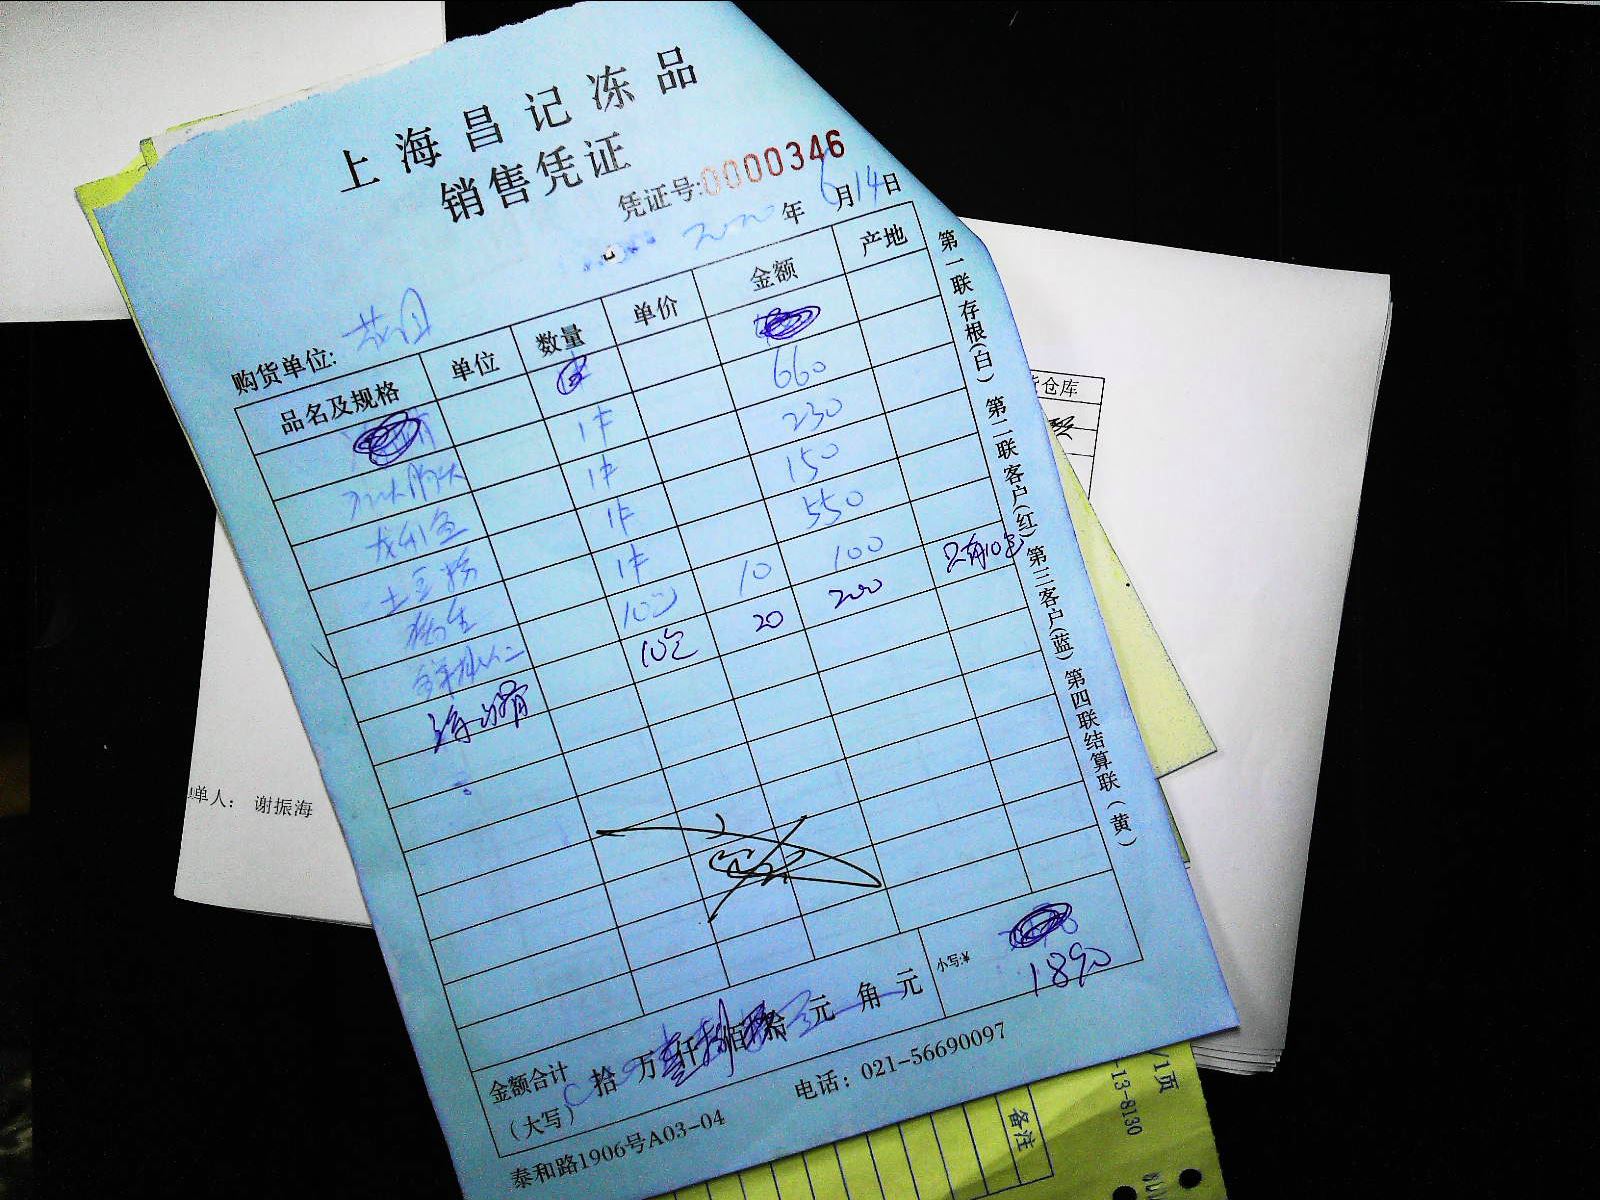 上海昌记冻品
销售凭证
凭证号:0000346
2020年6月14日
购货单位:
品名及规格 单位 数量 单价 金额 产地
1件 660
龙利鱼 1件 230
1件 150
1件 550
10包 10 100 只有10包
10包 20 200
金额合计（大写） 拾 万 仟 佰 拾 元 角 元 小写:¥ 1890
泰和路1906号A03-04 电话：021-56690097
第一联存根(白) 第二联客户(红) 第三客户(蓝) 第四联结算联(黄)
仓库
单人： 谢振海
/1页
-13-8130
备注